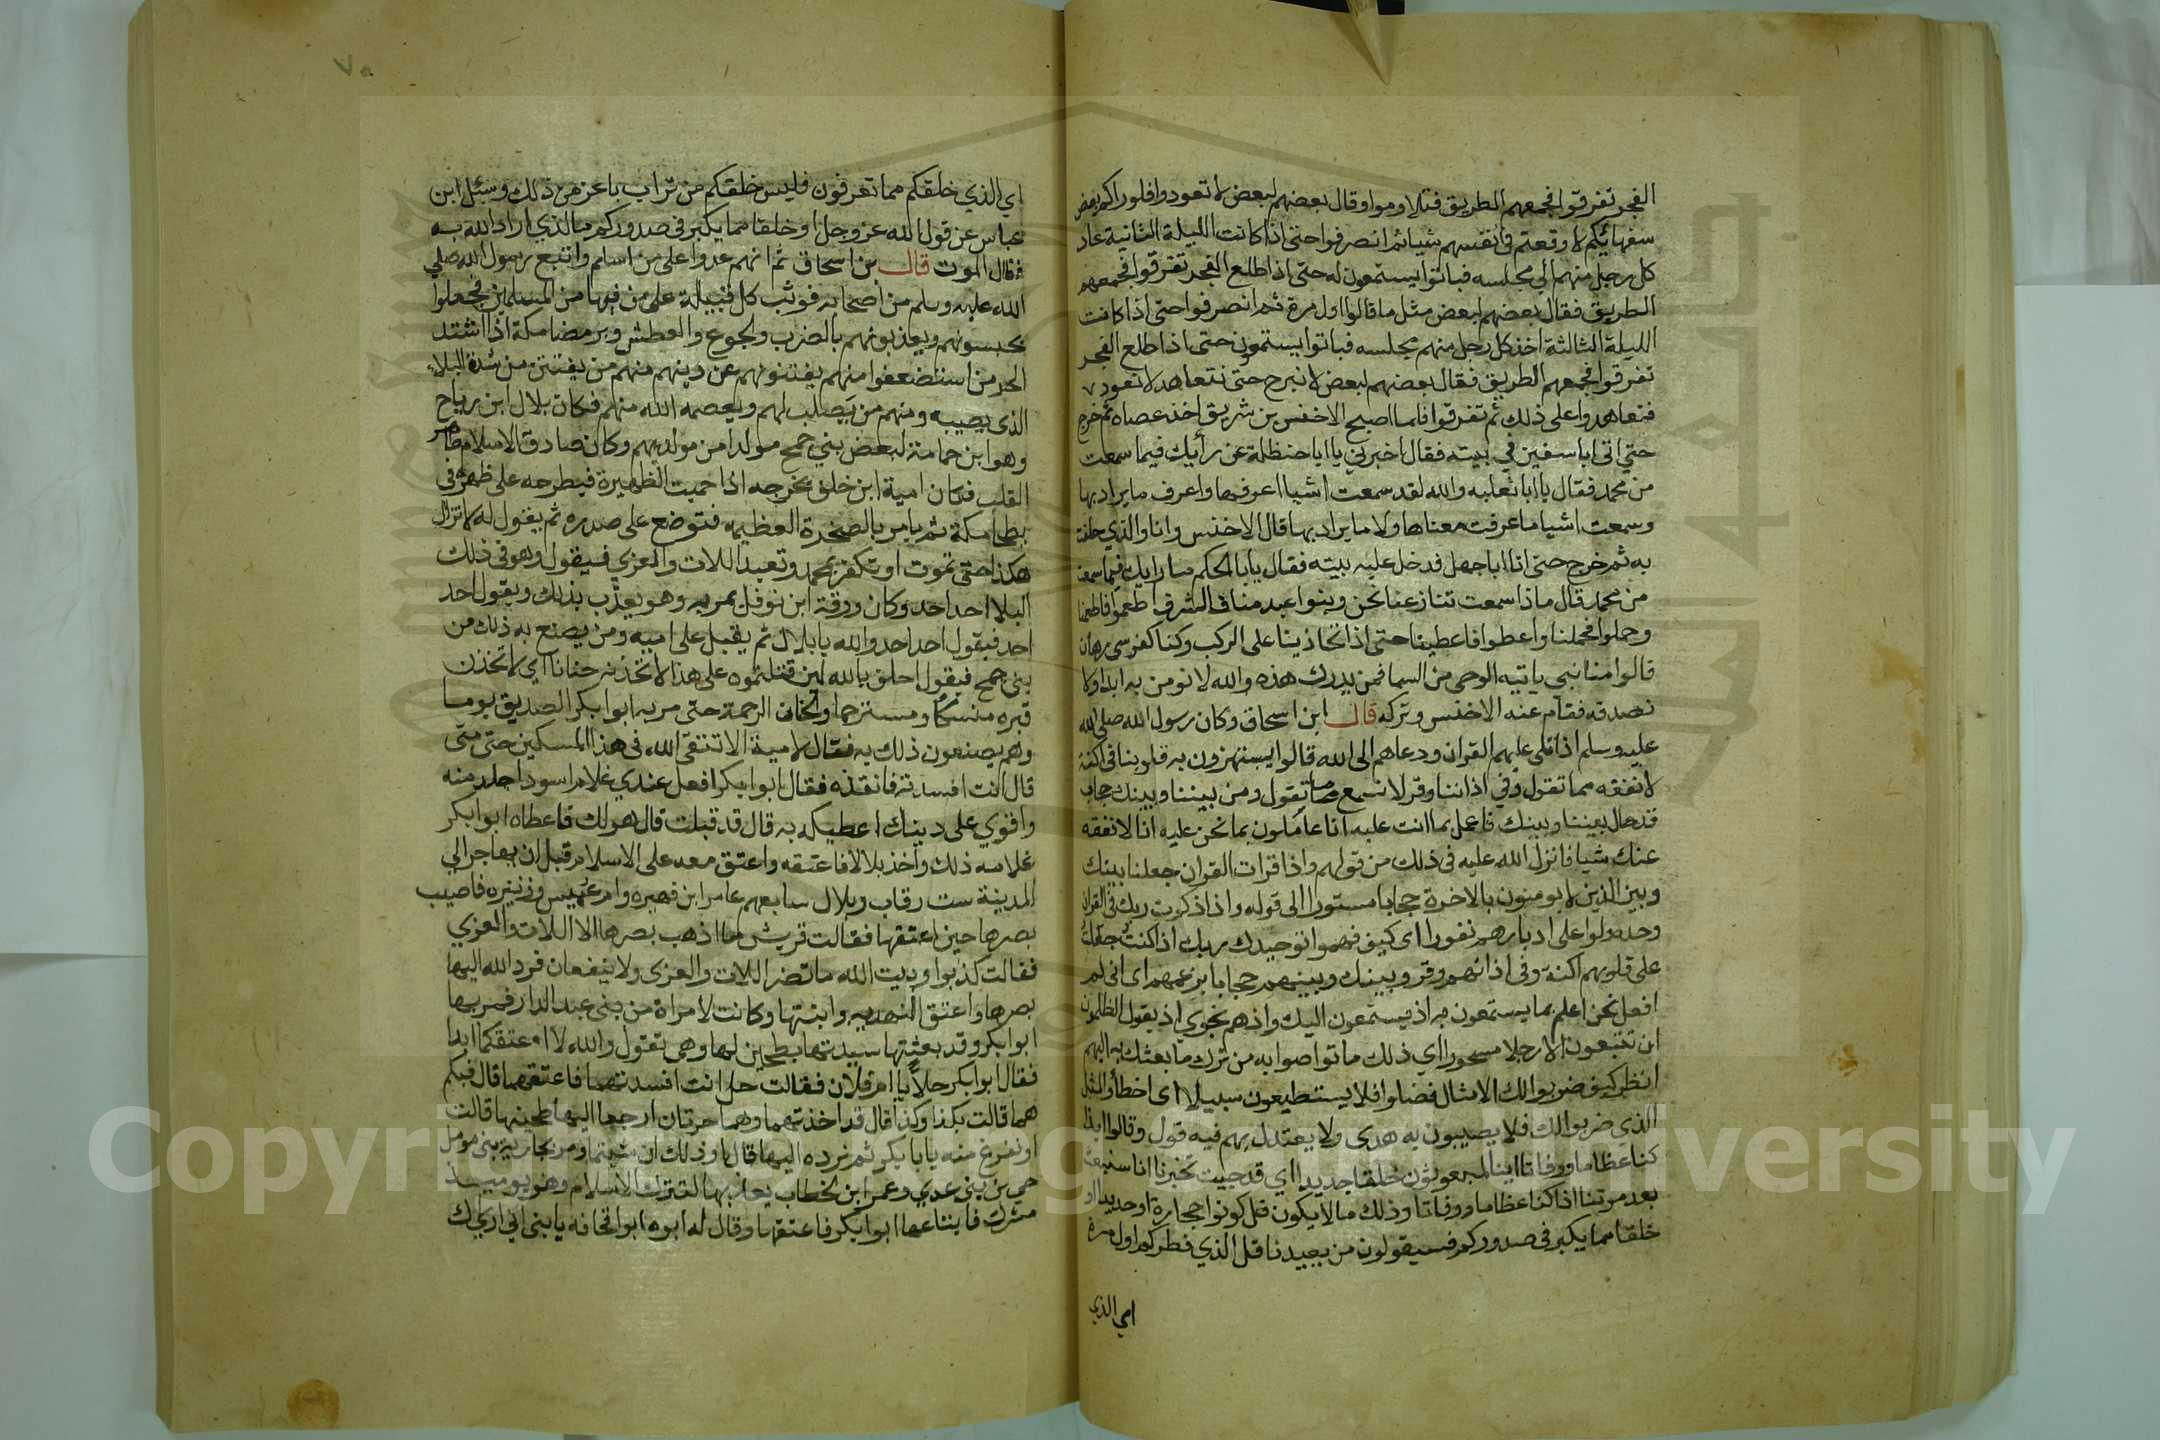 الفجر تفرقوا فجمعهم الطريق فتلاوموا وقال بعضهم لبعض لا تعودوا فلو راكم بعض
سفهائكم لاوقعتم في انفسهم شيا ثم انصرفوا حتى اذا كانت الليلة الثانية عاد
كل رجل منهم الي مجلسه فباتوا يستمعون له حتى اذا طلع الفجر تفرقوا فجمعهم
الطريق فقال بعضهم لبعض مثل ما قالوا اول مرة ثم انصرفوا حتى اذا كانت
الليلة الثالثة اخذ كل رجل منهم مجلسه فباتوا يستمعون حتى اذا طلع الفجر
تفرقوا فجمعهم الطريق فقال بعضهم لبعض لا نبرح حتى نتعاهد لا نعود
فتعاهدوا على ذلك ثم تفرقوا فلما اصبح الاخنس بن شريق اخذ عصاه ثم خرج
حتي اتى ابا سفين في بيته فقال اخبرني يا ابا حنظلة عن رأيك فيما سمعت
من محمد فقال يا ابا ثعلبه والله لقد سمعت اشيا اعرفها واعرف ما يراد بها
وسمعت اشيا ما عرفت معناها ولا ما يراد بها قال الاخنس وانا والذي حلفت
به ثم خرج حتى اتا ابا جهل فدخل عليه بيته فقال يابا الحكم ما رايك فيما سمعت
من محمد قال ماذا سمعت تنازعنا نحن وبنوا عبد مناف الشرف اطعموا فاطعمنا
وحملوا فحملنا واعطوا فاعطينا حتى اذا تحاذينا على الركب وكنا كفرسي رهان
قالوا منا نبي ياتيه الوحي من السما فمن يدرك هذه والله لا نومن به ابدا ولا
نصدقه فقام عنه الاخنس وتركه قال ابن اسحاق وكان رسول الله صلى الله
عليه وسلم اذا تلى عليهم القران ودعاهم الى الله قالوا يستهزون به قلوبنا في اكنة
لا نفقه مما تقول وفي اذاننا وقر لا نسمع ما تقول ومن بيننا وبينك حجاب
قد حال بيننا وبينك فاعمل بما انت عليه انا عاملون بما نحن عليه انا لا نفقه
عنك شيا فانزل الله عليه في ذلك من قولهم واذا قرات القران جعلنا بينك
وبين الذين لا يومنون بالاخرة حجابا مستورا الى قوله واذا ذكرت ربك في القران
وحده ولوا على ادبارهم نفورا اى كيف فهموا توحيدك ربك اذا كنت جعلت
على قلوبهم اكنة وفى اذانهم وقر وبينك وبينهم حجابا بزعمهم اى انى لم
افعل نحن اعلم بما يستمعون به اذ يستمعون اليك واذ هم نجوي اذ يقول الظالمون
ان تتبعون الا رجلا مسحورا اي ذلك ما تواصوا به من ترك ما بعثتك به اليهم
انظر كيف ضربوا لك الامثال فضلوا فلا يستطيعون سبيلا اى اخطأوا المثل
الذي ضربوا لك فلا يصيبون به هدى ولا يعتدل بهم فيه قول وقالوا ايذا
كنا عظاما ورفاتا اينا لمبعوثون خلقا جديدا اي قد جيت تخبرنا انا سنبعث
بعد موتنا اذا كنا عظاما ورفاتا وذلك ما لا يكون قل كونوا حجارة او حديدا او
خلقا مما يكبر فى صدوركم فسيقولون من يعيدنا قل الذي فطركم اول مرة
اي الذي
٧٥
اي الذي خلقكم مما تعرفون فليس خلقكم من تراب باعز من ذلك وسئل ابن
عباس عن قول الله عز وجل او خلقا مما يكبر في صدوركم ما الذي اراد الله به
فقال الموت قال بن اسحاق ثم انهم عدوا على من اسلم واتبع رسول الله صلي
الله عليه وسلم من اصحابه فوثب كل قبيلة على من فيها من المسلمين فجعلوا
يحبسونهم ويعذبونهم بالضرب والجوع والعطش وبرمضا مكة اذا اشتد
الحر من استضعفوا منهم يفتنونهم عن دينهم منهم من يفتتن من شدة البلاء
الذى يصيبه ومنهم من يصلب لهم ويعصمه الله منهم فكان بلال ابن رباح
وهو ابن حمامة لبعض بني جمح مولدا من مولديهم وكان صادق الاسلام طاهر
القلب فكان امية ابن خلف يخرجه اذا حميت الظهيرة فيطرحه على ظهره في
بطحا مكة ثم يامر بالصخرة العظيمه فتوضع على صدره ثم يقول له لا تزال
هكذا حتى تموت او تكفر بمحمد وتعبد اللات والعزي فيقول وهو في ذلك
البلا احد احد وكان ورقة ابن نوفل يمر به وهو يعذب بذلك ويقول احد
احد فيقول احد احد والله يا بلال ثم يقبل على اميه ومن يصنع به ذلك من
بني جمح فيقول احلف بالله لين قتلتموه على هذا لاتخذنه حنانا اي لاتخذن
قبره منسكا ومسترحما والحنان الرحمة حتى مر به ابوا بكر الصديق يوما
وهم يصنعون ذلك به فقال لامية الا تتقى الله فى هذا المسكين حتى متى
قال انت افسدته فانقذه فقال ابوا بكر افعل عندي غلام اسود اجلد منه
واقوي على دينك اعطيكه به قال قد قبلت قال هو لك فاعطاه ابوا بكر
غلامه ذلك واخذ بلالا فاعتقه واعتق معه على الاسلام قبل ان يهاجر الي
المدينة ست رقاب وبلال سابعهم عامر ابن فهيره وام عميس وزنيره فاصيب
بصرها حين اعتقها فقالت قريش ما اذهب بصرها الا اللات والعزي
فقالت كذبوا وبيت الله ما تضر اللات والعزى ولا ينفعان فرد الله اليها
بصرها واعتق النهديه وابنتها وكانت لامراة من بنى عبد الدار فمر بها
ابوا بكر وقد بعثتها سيدتها بطحين لها وهى تقول والله لا اعتقكما ابدا
فقال ابوا بكر حلا يا ام فلان فقالت حل انت افسدتهما فاعتقهما قال فبكم
هما قالت بكذا وكذا قال قد اخذتهما وهما حرتان ارجعا اليها طحينها قالت
او نفرغ منه يا با بكر ثم نرده اليها قال او ذلك ان شيتما ومر بجارية بنى مومل
حي بن بني عدي وعمر ابن الخطاب يعذبها لتترك الاسلام وهو يوميذ
مشرك فابتاعها ابوا بكر فاعتقها وقال له ابوه ابوا قحافه يا بني اني اريك
Copyright © King Saud University